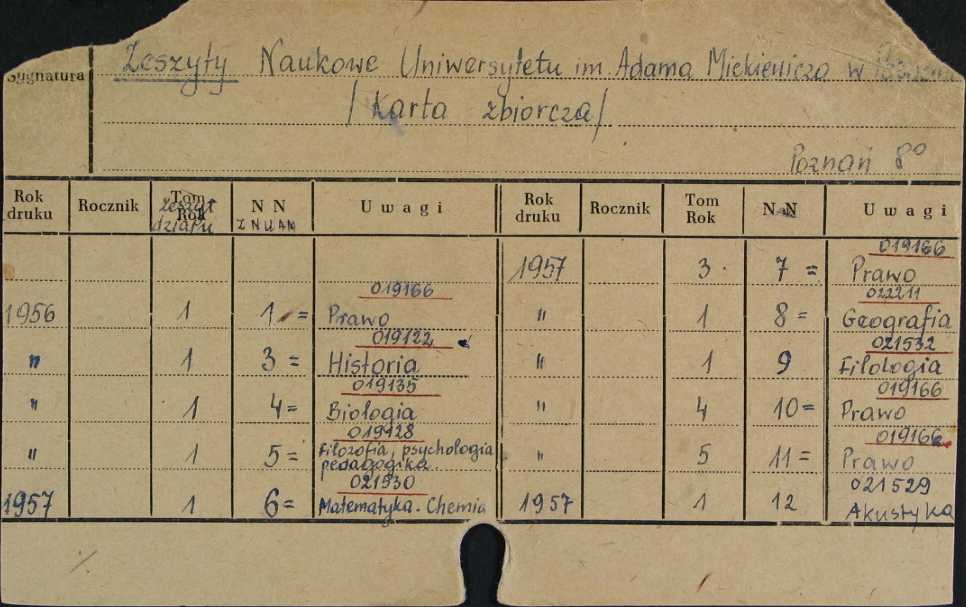 Sygnatura
Zeszyty Naukowe Uniwersytetu im Adama Mickiewicza w
/Karta zbiorcza/
Poznań 8°
Rok druku Rocznik Tom Rok zeszyt działu N N ZNUAM Uwagi Rok druku Rocznik Tom Rok N N Uwagi
1957 3. 7 = 019166 Prawo
1956 1 1 = 019166 Prawo " 1 8 = 022211 Geografia
" 1 3 = 019122 Historia " 1 9 021532 Filologia
" 1 4 = 019135 Biologia " 4 10 = 019166 Prawo
" 1 5 = 019128 Filozofia, psychologia pedagogika. " 5 11 = 019166 Prawo
1957 1 6 = 021530 Matematyka. Chemia 1957 1 12 021529 Akustyka